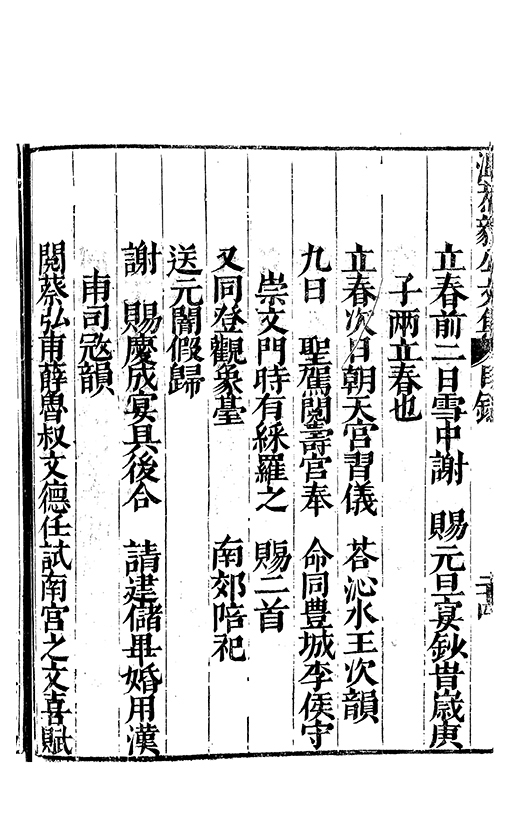 毅公文集 目錄
立春前二日雪中謝　賜元旦宴鈔昔嵗庚
子兩立春也
立春次日朝天宮習儀　荅沁水王次韻
九日　聖駕閱壽宮奉　命同豊城李侯守
崇文門時有綵羅之　賜二首
又同登觀象臺　南郊陪祀
送元闇假歸
謝　賜慶成宴具後合　請建儲婚用漢
甫司宼韻
閱蔡弘甫薛魯叔文德任試南宮之文喜賦